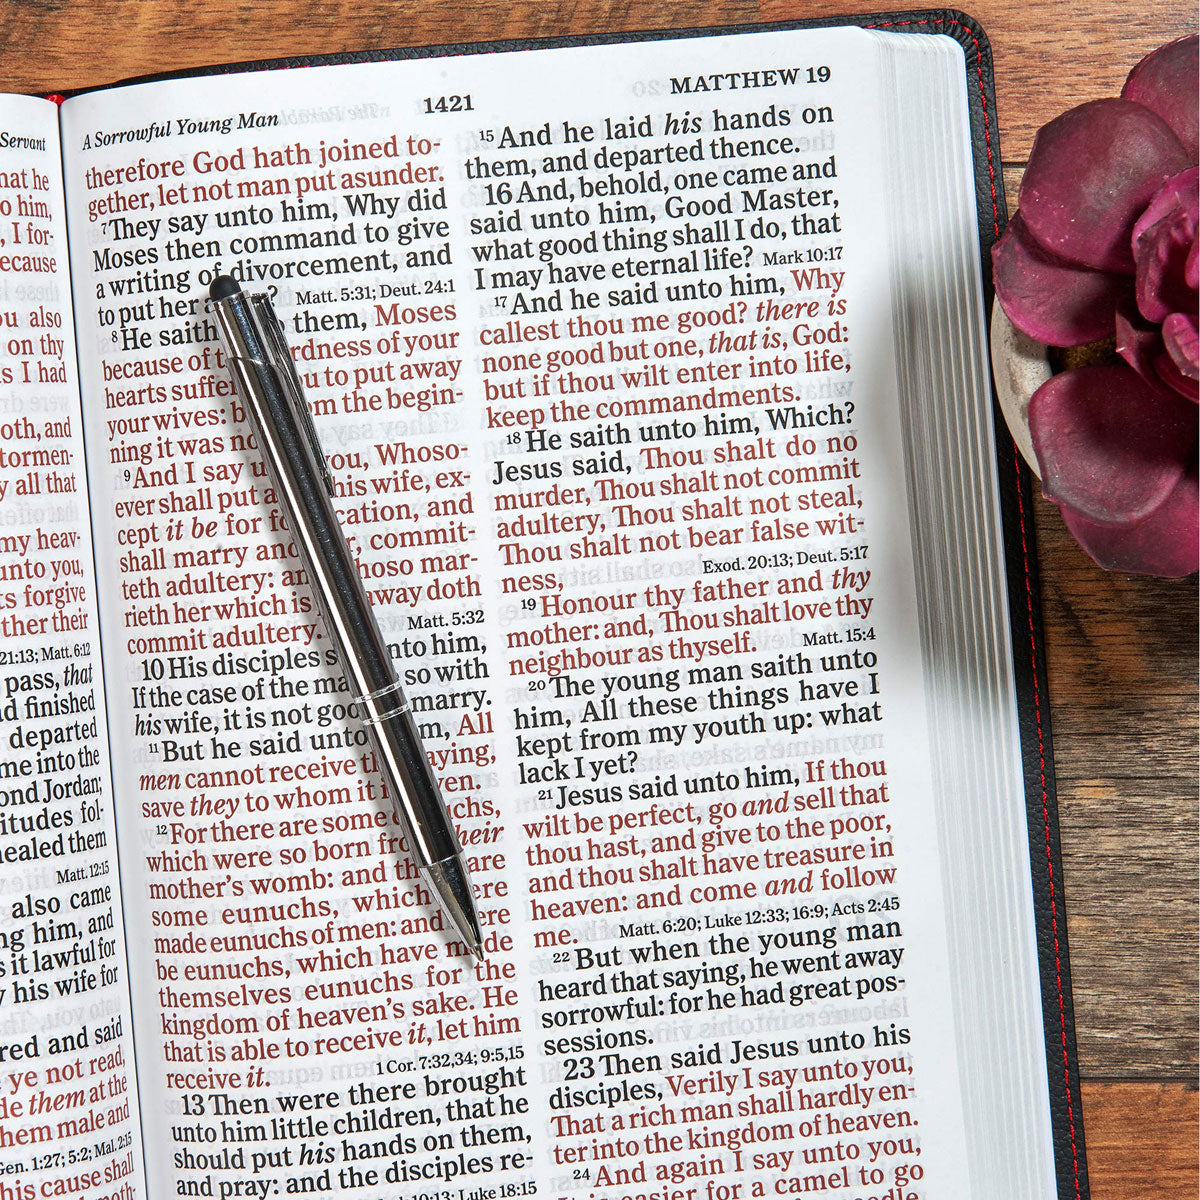 Servant
hat he
o him,
, I for-
ecause
ou also
on thy
s I had
oth, and
tormen-
y all that
my heav-
unto you,
ts forgive
other their
21:13; Matt. 6:12
pass, that
d finished
departed
me into the
ond Jordan;
itudes fol-
healed them
Matt. 12:15
also came
ng him, and
s it lawful for
his wife for
red and said
ye not read,
de them at the
hem male and
Gen. 1:27; 5:2; Mal. 2:15
his cause shall
A Sorrowful Young Man
1421
MATTHEW 19
therefore God hath joined to-
gether, let not man put asunder.
7 They say unto him, Why did
Moses then command to give
a writing of divorcement, and
to put her ?
Matt. 5:31; Deut. 24:1
8 He saith them, Moses
because of rdness of your
hearts suffe u to put away
your wives: b om the begin-
ning it was no
9 And I say u you, Whoso-
ever shall put a his wife, ex-
cept it be for fo cation, and
shall marry ano , commit-
teth adultery: an hoso mar-
rieth her which is away doth
commit adultery.
Matt. 5:32
10 His disciples s nto him,
If the case of the ma so with
his wife, it is not goo marry.
11 But he said unto m, All
men cannot receive th aying,
save they to whom it i ven.
12 For there are some uchs,
which were so born fro heir
mother's womb: and th are
some eunuchs, which ere
made eunuchs of men: and ere
be eunuchs, which have made
themselves eunuchs for the
kingdom of heaven's sake. He
that is able to receive it, let him
receive it.
1 Cor. 7:32,34; 9:5,15
13 Then were there brought
unto him little children, that he
should put his hands on them,
and pray: and the disciples re-
10:13; Luke 18:15
15 And he laid his hands on
them, and departed thence.
16 And, behold, one came and
said unto him, Good Master,
what good thing shall I do, that
I may have eternal life? Mark 10:17
17 And he said unto him, Why
callest thou me good? there is
none good but one, that is, God:
but if thou wilt enter into life,
keep the commandments.
18 He saith unto him, Which?
Jesus said, Thou shalt do no
murder, Thou shalt not commit
adultery, Thou shalt not steal,
Thou shalt not bear false wit-
ness,
Exod. 20:13; Deut. 5:17
19 Honour thy father and thy
mother: and, Thou shalt love thy
neighbour as thyself. Matt. 15:4
20 The young man saith unto
him, All these things have I
kept from my youth up: what
lack I yet?
21 Jesus said unto him, If thou
wilt be perfect, go and sell that
thou hast, and give to the poor,
and thou shalt have treasure in
heaven: and come and follow
me. Matt. 6:20; Luke 12:33; 16:9; Acts 2:45
22 But when the young man
heard that saying, he went away
sorrowful: for he had great pos-
sessions.
23 Then said Jesus unto his
disciples, Verily I say unto you,
That a rich man shall hardly en-
ter into the kingdom of heaven.
24 And again I say unto you,
easier for a camel to go